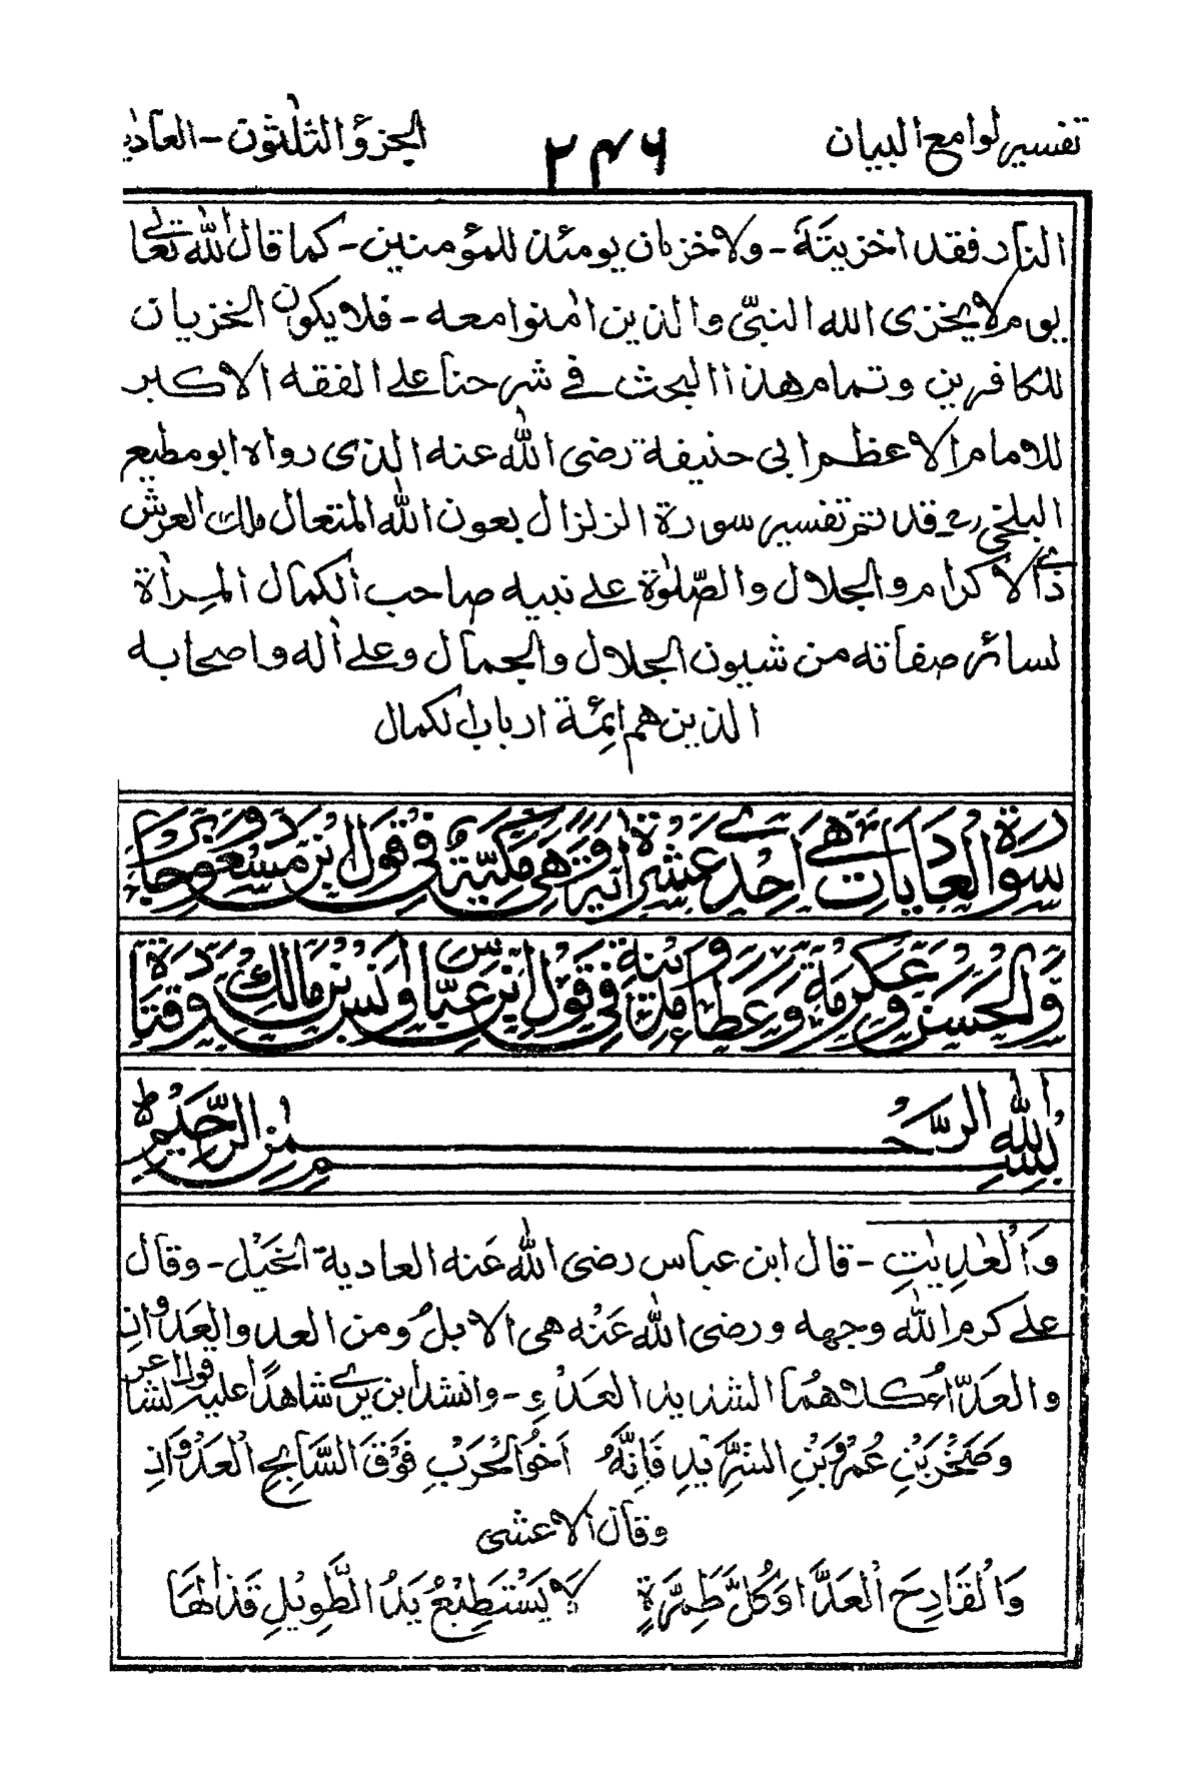 تفسير لوامع البيان ٢٤٦ الجزؤ الثلثون – العاديٰ
النار فقد اخزيتهٗ – ولا خزيان يومئذ للمؤمنين – كما قال الله تعالٰى
يوم لا يخزى الله النبىّ والذين اٰمنوا معه – فلا يكون الخزيان
للكافرين وتمام هذا البحث فى شرحنا على الفقه الاكبر
للامام الاعظم ابى حنيفة رضى الله عنه الذى رواه ابو مطيع
البلخى رح قد تم تفسير سورة الزلزال بعون الله المتعال ملك العرش
ذى الاكرام والجلال والصّلوٰة على نبيه صاحب الكمال المرأة
لسائر صفاته من شيون الجلال والجمال وعلى اٰله واصحابه
الذين هم ائمة ارباب الكمال
سورة العاديات هى احدى عشر اٰية وهى مكية فى قول ابن مسعود وجابر
والحسن وعكرمة وعطاء مدنية فى قول ابن عباس وانس بن مالك وقتادة
بسم الله الرحمٰن الرحيم ط
وَالْعٰدِيٰتِ – قال ابن عباس رضى الله عَنه العادية الخَيْل – وقال
على كرم الله وجهه ورضى الله عَنْه هى الابل ومن العدو والعَدَوانِ
والعَدّاءُ كلاهما الشديد العَدْوِ – وانشد ابن برى شاهدًا عليه قول الشاعر
وَصَخْرُ بْنِ عُمْرِو بْنِ الشَّرِيْدِ فَاِنَّهٗ اَخُو الْحَرْبِ فَوْقَ السَّابِحِ الْعَدَوَانِ
وقال الاعشى
وَالْقَادِحَ الْعَدَّا وَكُلَّ طِمِرَّةٍ لَا يَسْتَطِيْعُ يَدُ الطَّوِيْلِ قَذَالَهَا